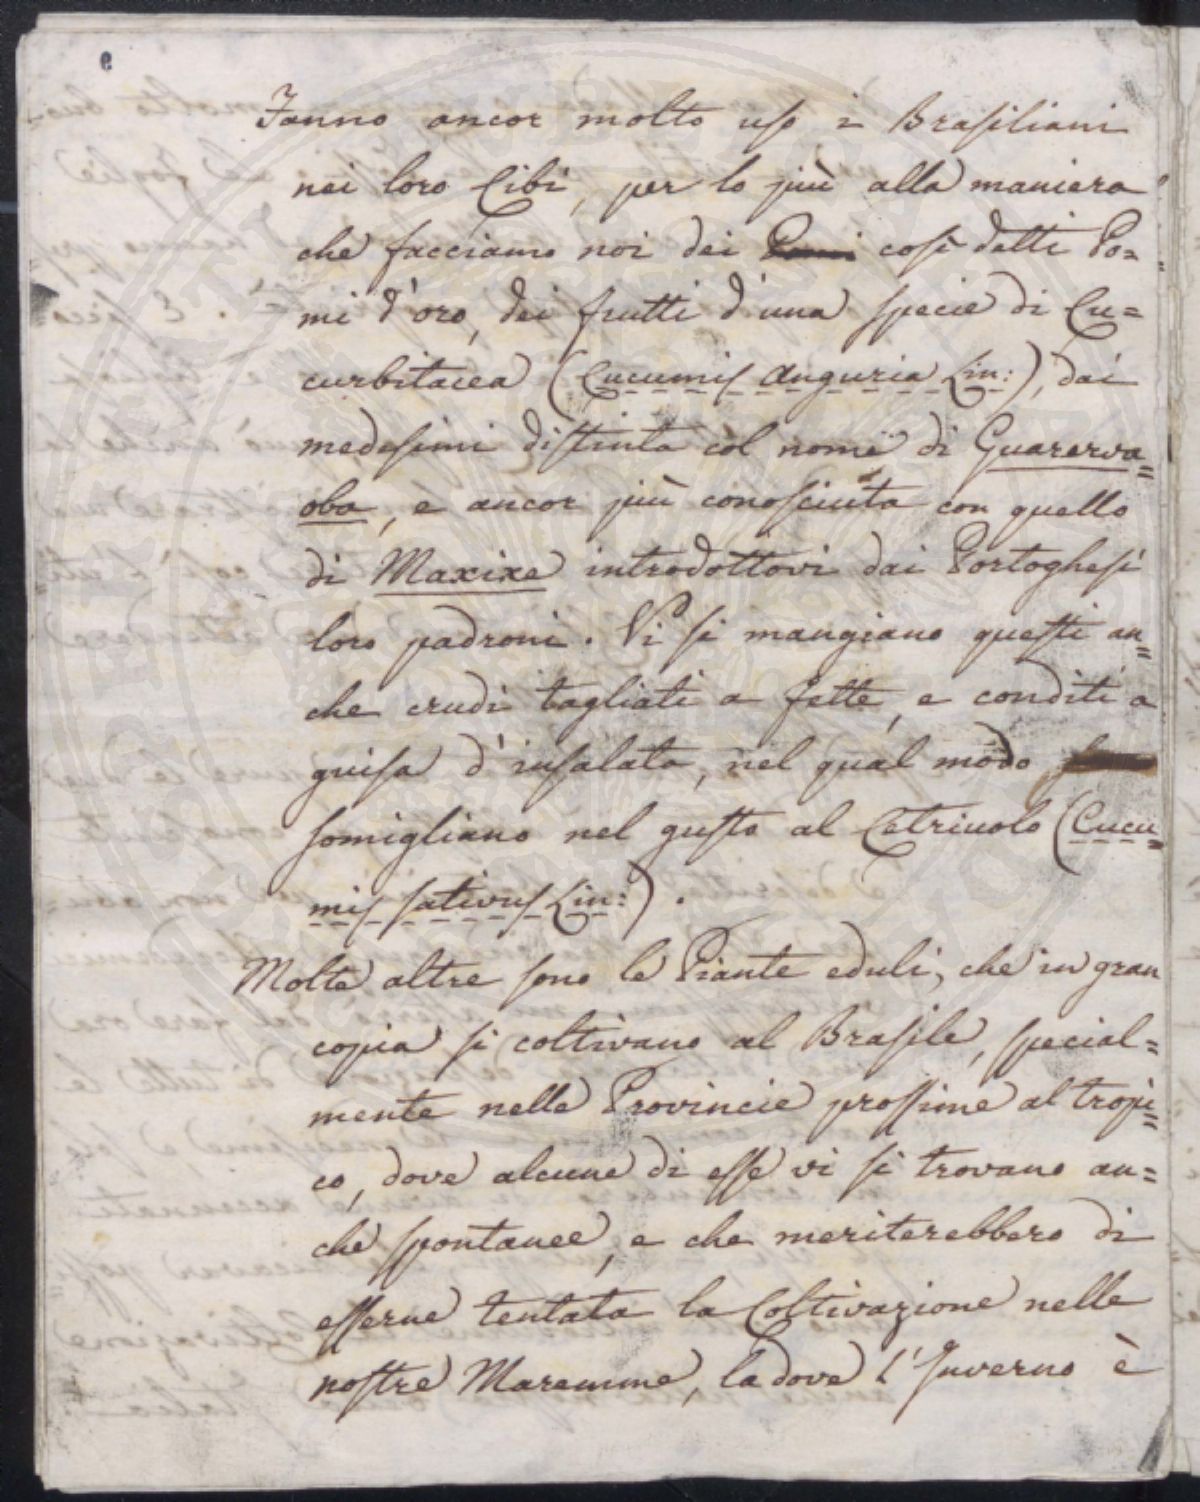 Fanno ancor molto uso i Brasiliani
nei loro Cibi, per lo più alla maniera
che facciamo noi dei Pomi così detti Po=
mi d'oro, dei frutti d'una specie di Cu=
curbitacea (Cucumis Anguria Lin:), dai
medesimi distinta col nome di Guarerva=
oba, e ancor più conosciuta con quello
di Maxixe introdottovi dai Portoghesi
loro padroni. Vi si mangiano questi an=
che crudi tagliati a fette, e conditi a
guisa d'insalata, nel qual modo
somigliano nel gusto al Cetriuolo (Cucu=
mis sativus Lin:).
Molte altre sono le Piante eduli, che in gran
copia si coltivano al Brasile, special=
mente nelle Provincie prossime al tropi=
co, dove alcune di esse vi si trovano an=
che spontanee, e che meriterebbero di
esserne tentata la Coltivazione nelle
nostre Maremme, la dove l'Inverno è